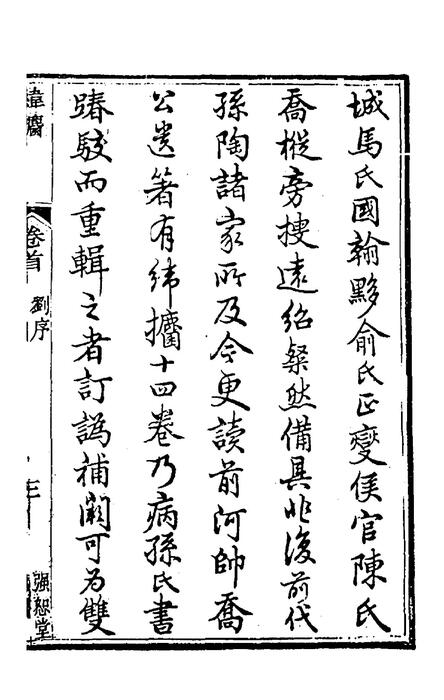 城馬氏國翰黟俞氏正燮侯官陳氏
喬樅旁搜遠紹粲然備具非復前代
孫陶諸家所及今更讀前河帥喬
公遺箸有緯攟十四卷乃病孫氏書
踳駮而重輯之者訂譌補闕可为雙
緯攟
卷首
劉序
三
强恕堂